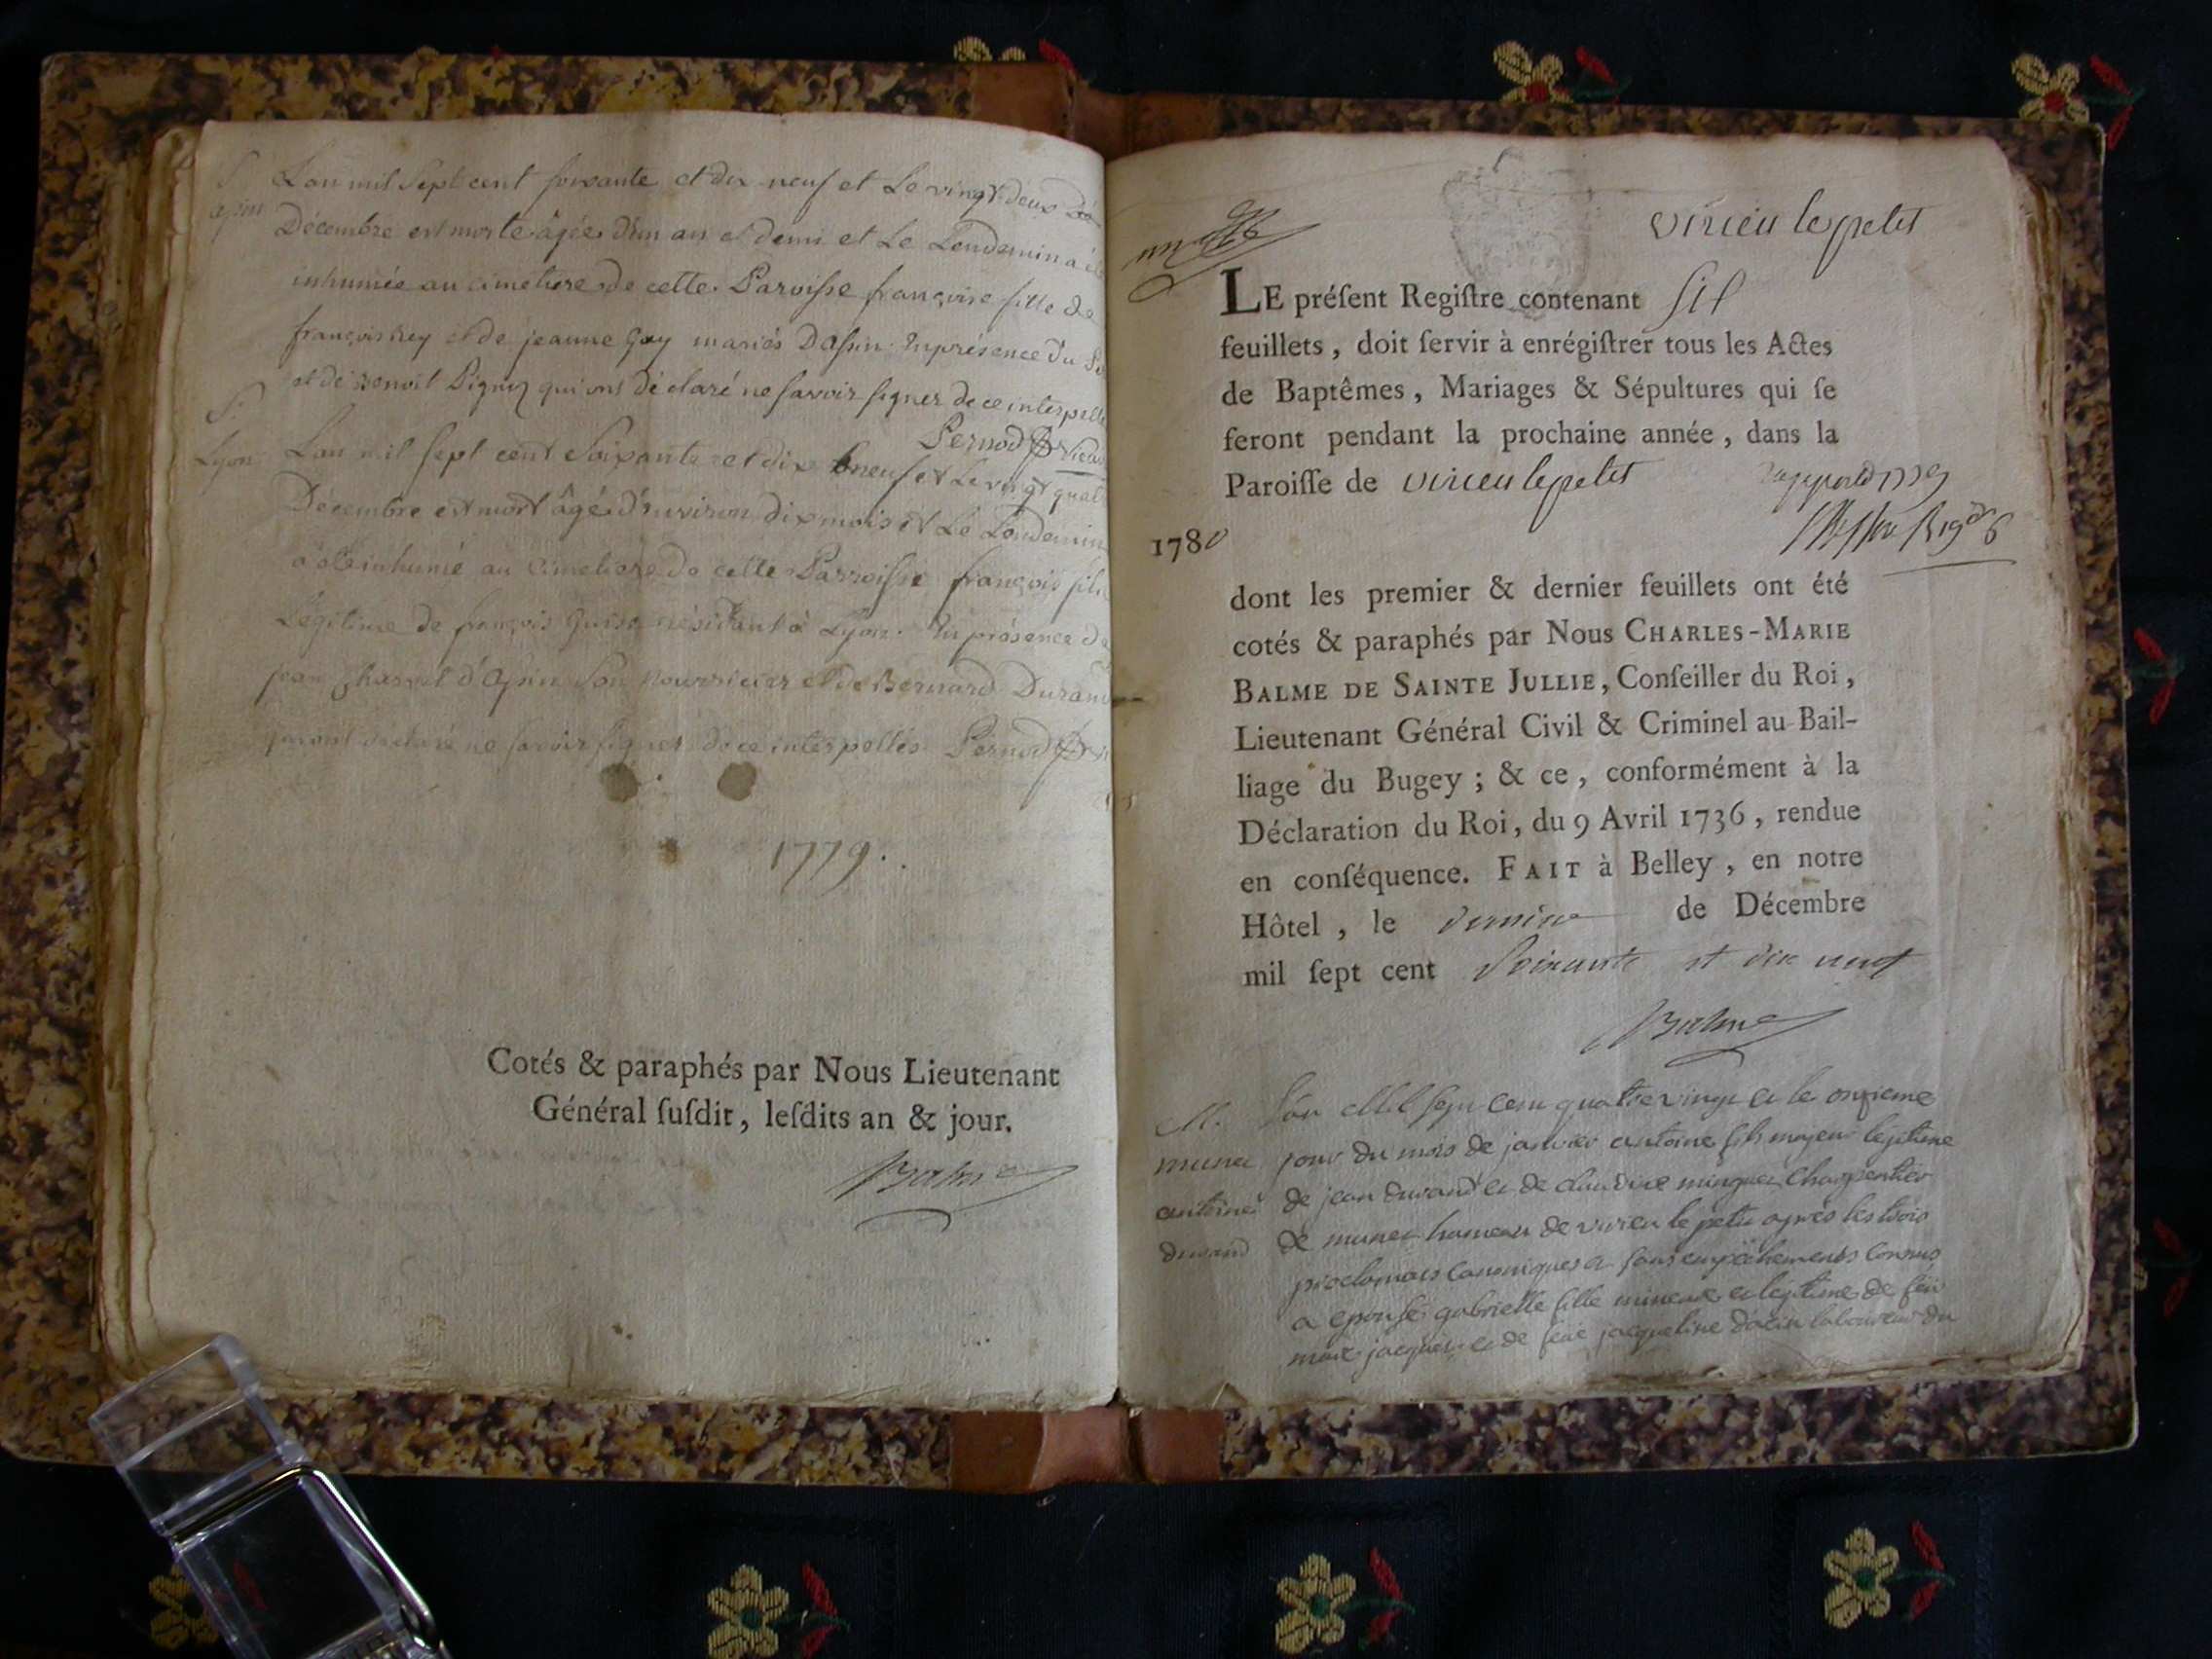 S.
apin
L'an mil Sept cent soixante et dix neuf et Le vingt deux
Décembre est morte âgée d'un an et demi et Le Lendemain a
inhumée au cimetiere de cette Paroisse françoise fille de
françois Rey et de jeanne Goy mariés D'assin. En présence du
et de Benoit Pignin qui ont déclaré ne savoir signer de ce interpellé
Pernod
S.
Lyon
L'an mil sept cent Soixante et dix neuf et Le vingt quat
Décembre est mort âgé d'environ dix mois et Le Lendemain
a été inhumé au Cimetiere de cette Parroisse françois fils
Légitime de françois résidant à Lyon. En présence de
jean d'Assin Son Nourricier et de Bernard Durand
qui ont déclaré ne savoir signer de ce interpellés Pernod
1779.
Cotés & paraphés par Nous Lieutenant
Général ſuſdit, leſdits an & jour.
Balme
virieu le petit
LE préſent Regiſtre contenant six
feuillets, doit ſervir à enrégiſtrer tous les Actes
de Baptêmes, Mariages & Sépultures qui ſe
feront pendant la prochaine année, dans la
Paroiſſe de virieu le petit
1780
dont les premier & dernier feuillets ont été
cotés & paraphés par Nous CHARLES-MARIE
BALME DE SAINTE JULLIE, Conſeiller du Roi,
Lieutenant Général Civil & Criminel au Bail-
liage du Bugey ; & ce, conformément à la
Déclaration du Roi, du 9 Avril 1736, rendue
en conſéquence. FAIT à Belley, en notre
Hôtel, le dernier de Décembre
mil ſept cent Soixante et dix neuf
Balme
M.
munet
antoine
durand
L'an Mil sept cent quatre vingt et le onzieme
jour du mois de janvier antoine fils majeur légitime
de jean durand et de claudine minguet Charpentier
de munet hameau de virieu le petit apres les trois
proclamats canoniques et sans empêchements connus
a épousé gabrielle fille mineure et legitime de feu
marc jacquet et de feüe jacqueline d'acin laboureur du